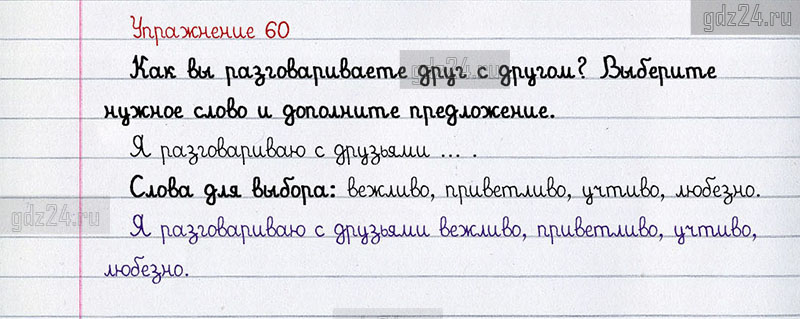 gdz24.ru
Упражнение 60
Как вы разговариваете друг с другом? Выберите
gdz24.ru
нужное слово и дополните предложение.
Я разговариваю с друзьями ... .
Слова для выбора: вежливо, приветливо, учтиво, любезно.
gdz24.ru
Я разговариваю с друзьями вежливо, приветливо, учтиво,
любезно.